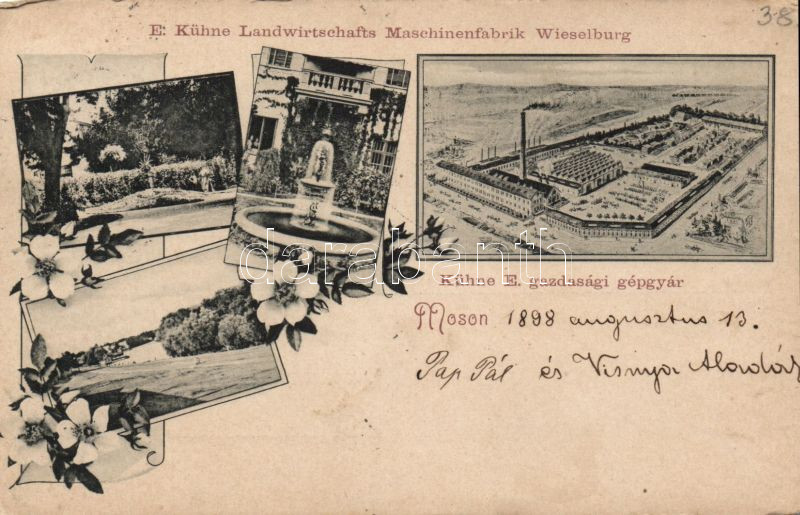 38
E. Kühne Landwirtschafts Maschinenfabrik Wieselburg
darabanth
Kühne E. gazdasági gépgyár
Moson 1898 augusztus 13.
Pap Pál és Visnya Aladár